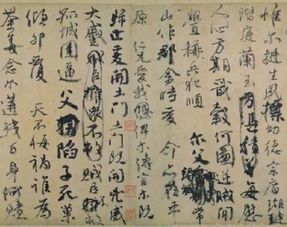 惟爾挺生夙標幼德宗廟瑚璉
階庭蘭玉每慰
人心方期戩穀何圖逆賊間
釁稱兵犯順爾父竭誠常
山作郡余時受命亦在平
原仁兄愛我俾爾傳言爾既
歸止爰開土門土門既開凶威
大蹙賊臣不救
孤城圍逼父陷子死巢
傾卵覆天不悔禍誰為
荼毒念爾遘殘百身何贖